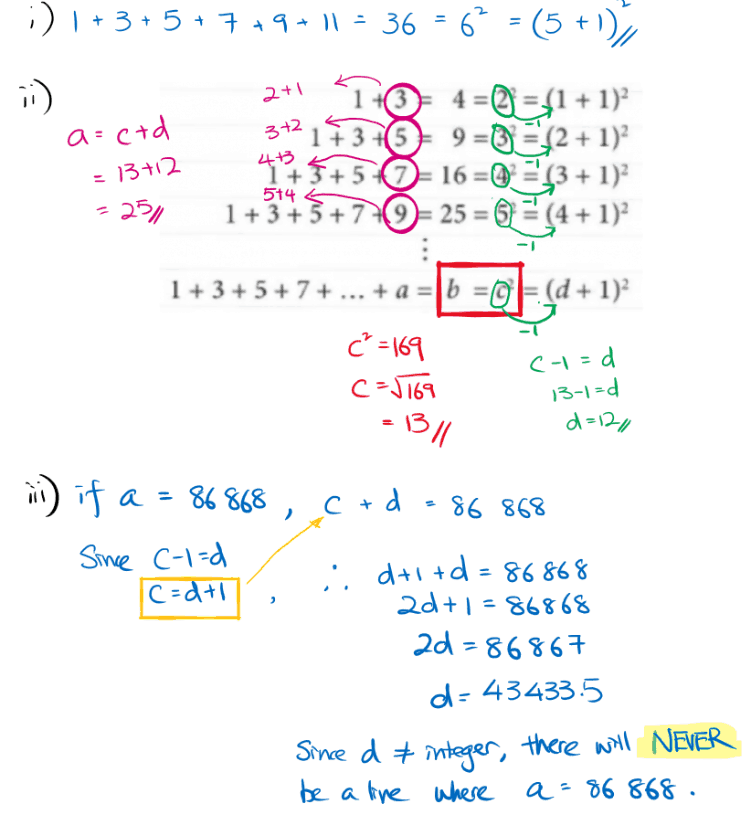 i) 1 + 3 + 5 + 7 + 9 + 11 = 36 = 6² = (5 + 1)²//
ii)
2+1 1 + 3 = 4 = 2² = (1 + 1)²
-1
a = c+d 3+2 1 + 3 + 5 = 9 = 3² = (2 + 1)²
-1
= 13+12 4+3 1 + 3 + 5 + 7 = 16 = 4² = (3 + 1)²
-1
= 25// 5+4 1 + 3 + 5 + 7 + 9 = 25 = 5² = (4 + 1)²
-1
⋮
1 + 3 + 5 + 7 + ... + a = b = c² = (d + 1)²
-1
c² = 169
c = √169
= 13//
c - 1 = d
13-1=d
d=12//
iii) if a = 86 868, c + d = 86 868
Since c-1=d
c=d+1, ∴ d+1+d = 86868
2d+1 = 86868
2d = 86867
d = 43433.5
Since d ≠ integer, there will NEVER
be a line where a = 86 868.